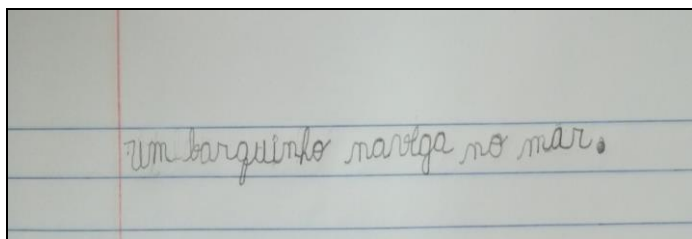 Um barquinho navega no mar.